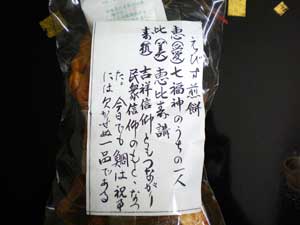 えびす煎餅
恵(愛)七福神のうちの一人
比(美)恵比寿講
寿
吉祥信仰ともつながり
民衆信仰のもととなっ
た。今日でも鯛は祝事
には欠かせぬ一品である